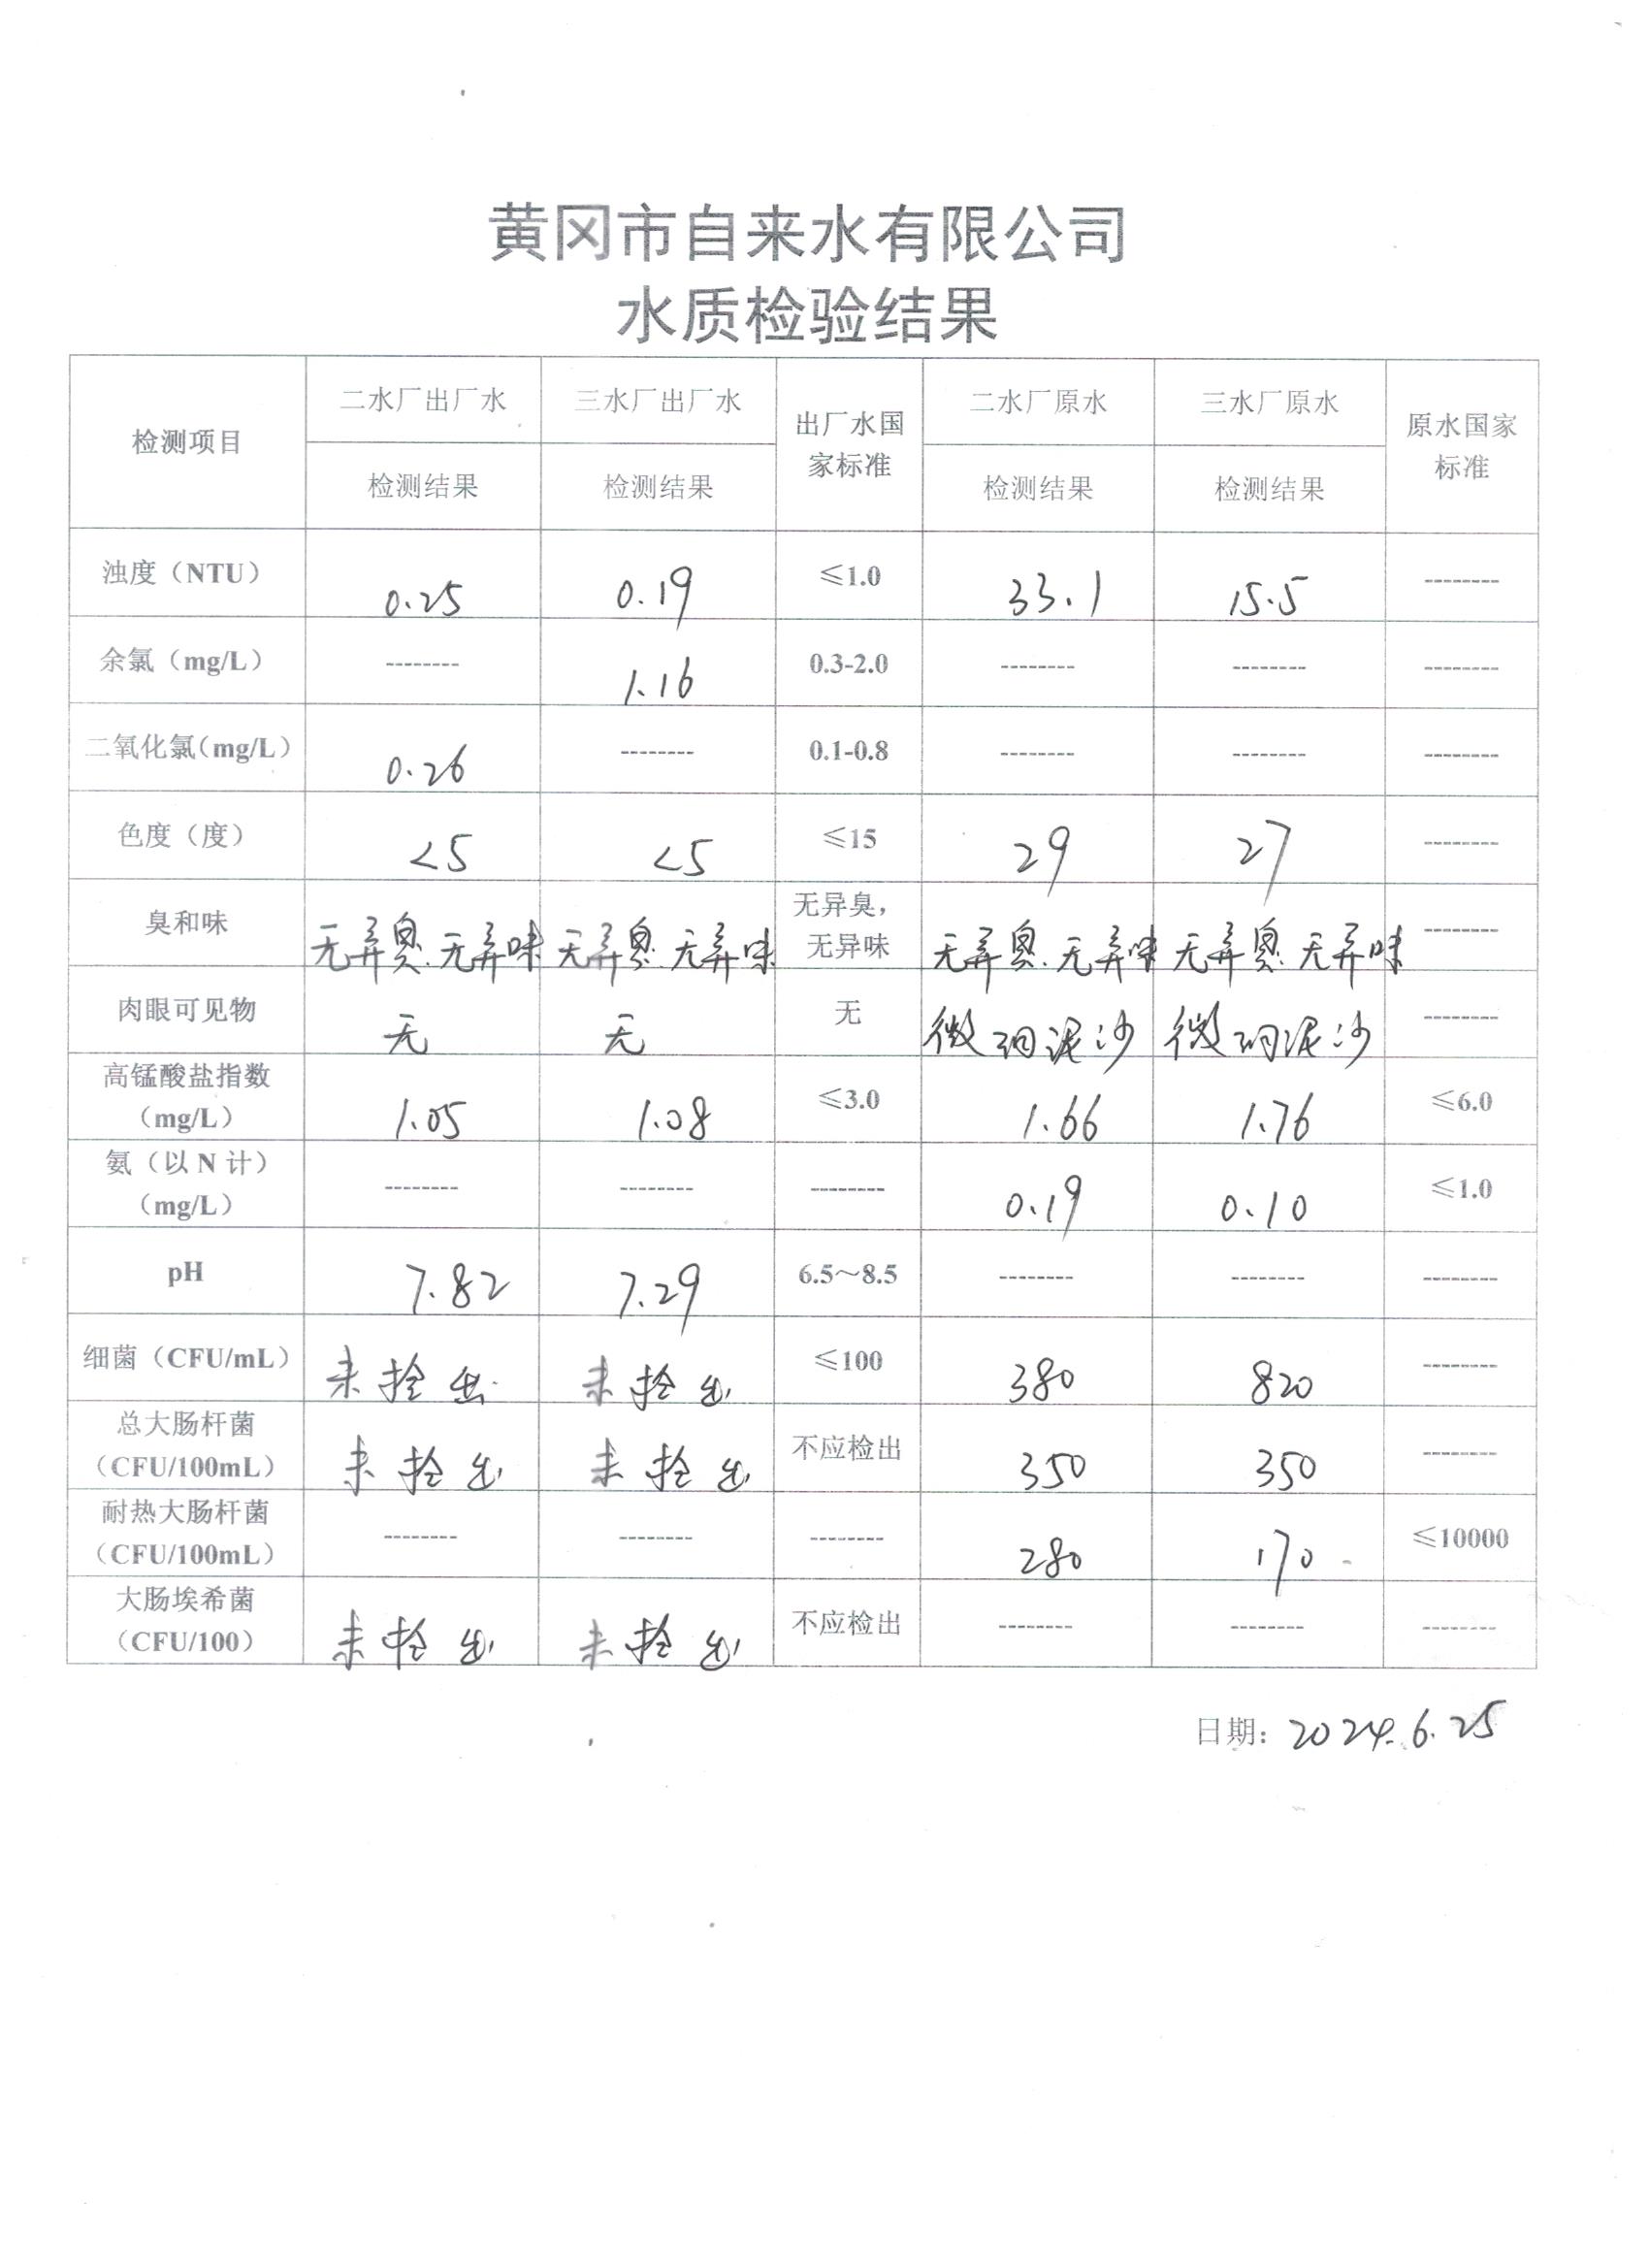 黄冈市自来水有限公司
水质检验结果
检测项目 二水厂出厂水 三水厂出厂水 出厂水国家标准 二水厂原水 三水厂原水 原水国家标准
检测结果 检测结果 检测结果 检测结果
浊度（NTU） 0.25 0.19 ≤1.0 33.1 15.5 --------
余氯（mg/L） -------- 1.16 0.3-2.0 -------- -------- --------
二氧化氯（mg/L） 0.26 -------- 0.1-0.8 -------- -------- --------
色度（度） <5 <5 ≤15 29 27 --------
臭和味 无异臭.无异味 无异臭.无异味 无异臭，无异味 无异臭.无异味 无异臭.无异味 --------
肉眼可见物 无 无 无 微细泥沙 微细泥沙 --------
高锰酸盐指数（mg/L） 1.05 1.08 ≤3.0 1.66 1.76 ≤6.0
氨（以 N 计）（mg/L） -------- -------- -------- 0.19 0.10 ≤1.0
pH 7.82 7.29 6.5～8.5 -------- -------- --------
细菌（CFU/mL） 未检出 未检出 ≤100 380 820 --------
总大肠杆菌（CFU/100mL） 未检出 未检出 不应检出 350 350 --------
耐热大肠杆菌（CFU/100mL） -------- -------- -------- 280 170 ≤10000
大肠埃希菌（CFU/100） 未检出 未检出 不应检出 -------- -------- --------
日期：2024.6.25